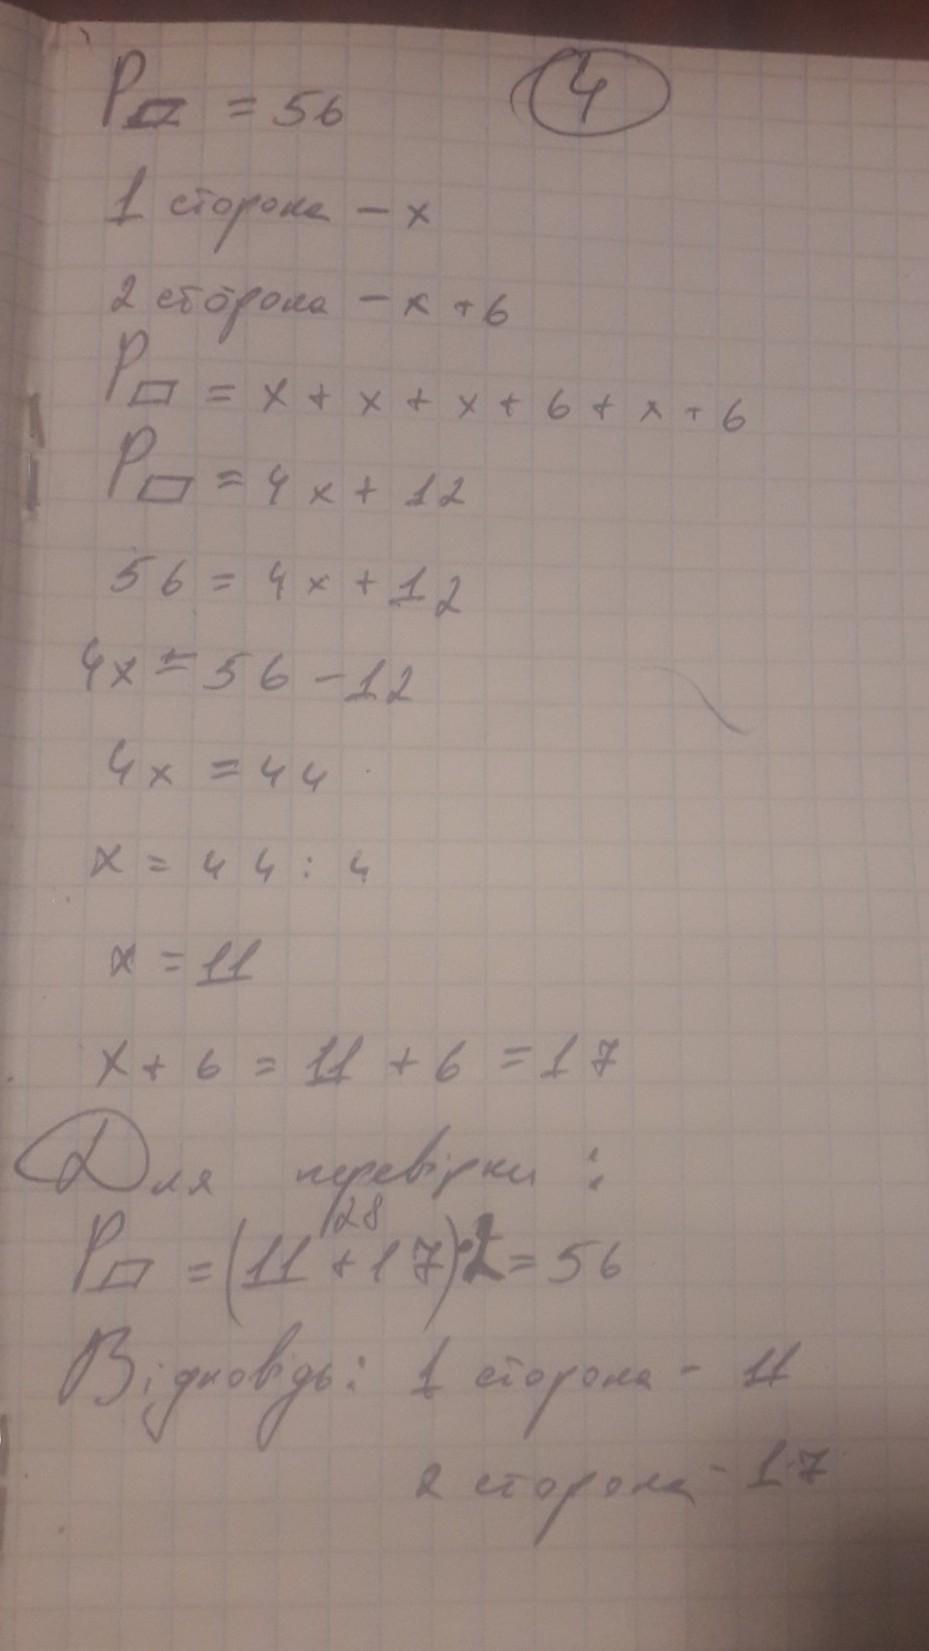 P▱ = 56
4
1 сторона – x
2 сторона – x + 6
P▱ = x + x + x + 6 + x + 6
P▱ = 4x + 12
56 = 4x + 12
4x = 56 – 12
4x = 44
x = 44 : 4
x = 11
x + 6 = 11 + 6 = 17
Для перевірки:
28
P▱ = (11 + 17)·2 = 56
Відповідь: 1 сторона - 11
2 сторона - 17